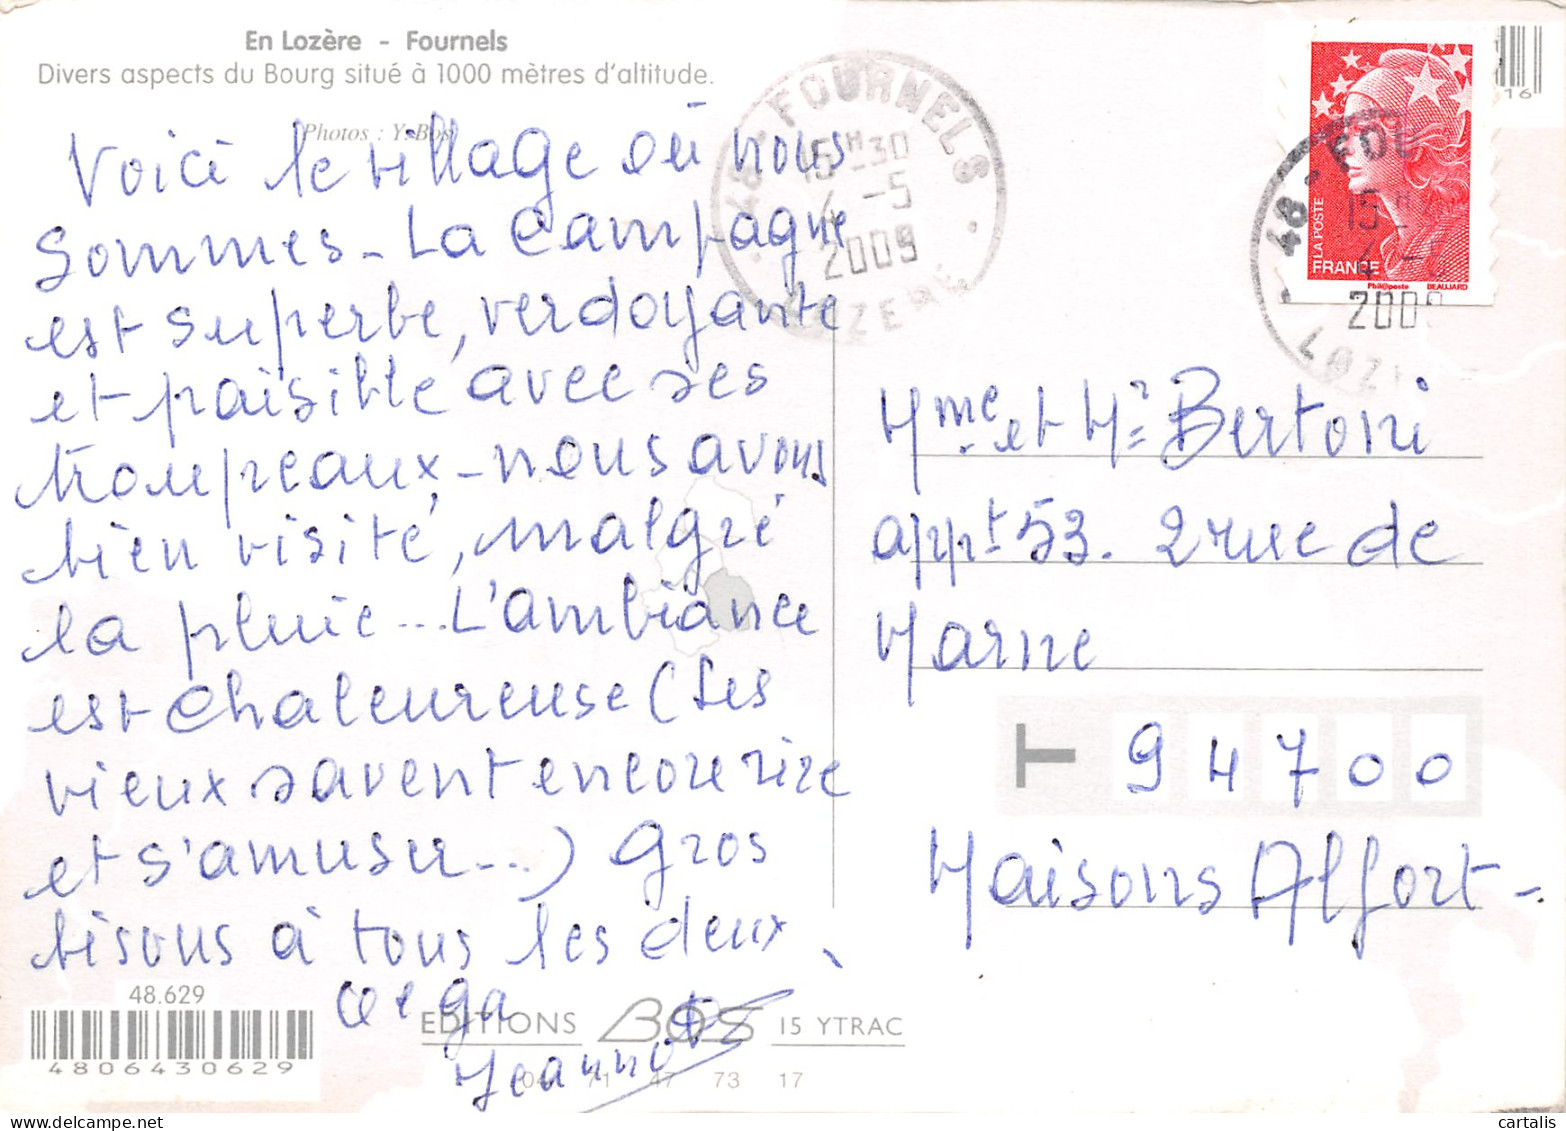 En Lozère - Fournels
Divers aspects du Bourg situé à 1000 mètres d'altitude.
Photos : Y. Bos
Voici le village où nous
sommes - La Campagne
est superbe, verdoyante
et paisible avec ses
troupeaux, - nous avons
bien visité, malgré
la pluie ... L'ambiance
est chaleureuse (Les
vieux savent encore rire
et s'amuser...) Gros
bisous à tous les deux.
Olga
Jeannot
48.629
4806430629
EDITIONS BOS 15 YTRAC
71 47 73 17
48 - FOURNELS
15H30
4 -5
2009
LOZERE
16
LA POSTE
FRANCE
Phil@poste BEAUJARD
48 - FOU
15H
4 -5
200
LOZ
Mme et Mr Bertoni
appt 53. 2 rue de
Marne
T 94700
Maisons Alfort -
cartalis